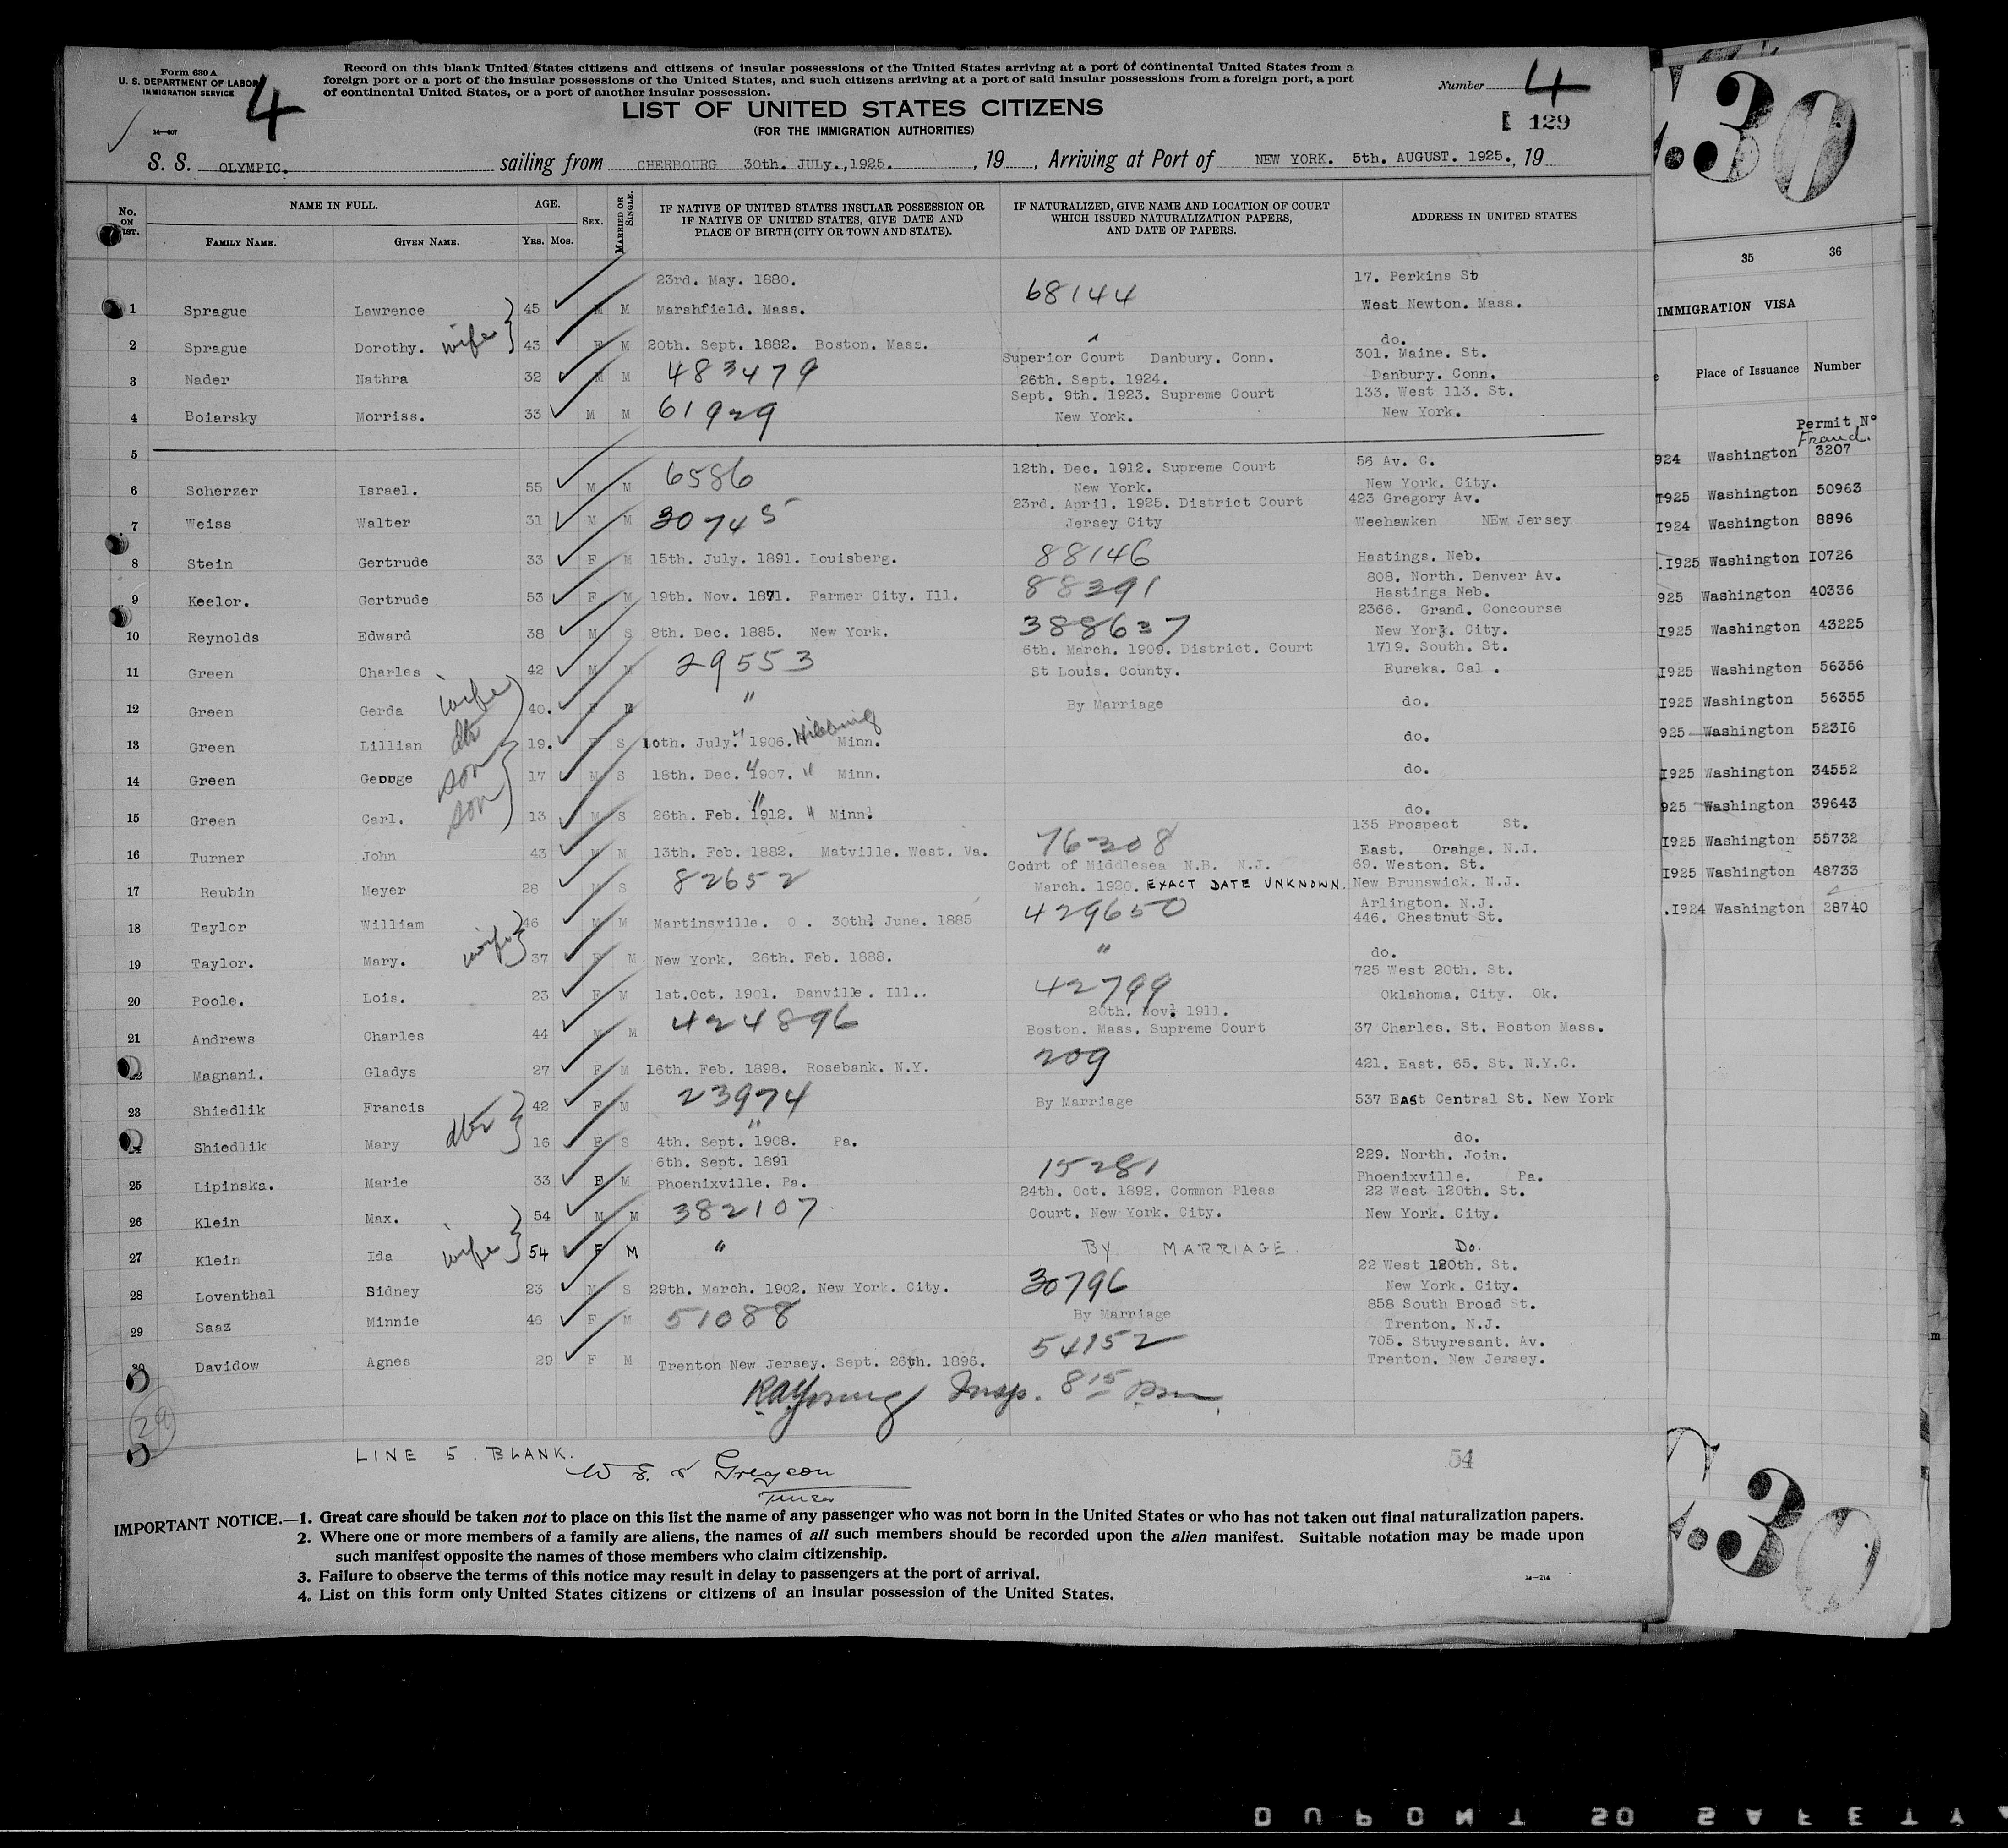 Form 630 A
U. S. DEPARTMENT OF LABOR
IMMIGRATION SERVICE
14—607
4
Record on this blank United States citizens and citizens of insular possessions of the United States arriving at a port of continental United States from a
foreign port or a port of the insular possessions of the United States, and such citizens arriving at a port of said insular possessions from a foreign port, a port
of continental United States, or a port of another insular possession.
Number 4
LIST OF UNITED STATES CITIZENS
(FOR THE IMMIGRATION AUTHORITIES)
129
S. S. OLYMPIC. sailing from CHERBOURG 30th. JULY.,1925. , 19 , Arriving at Port of NEW YORK. 5th. AUGUST. 1925., 19
No. ON LIST. NAME IN FULL. AGE. SEX. MARRIED OR SINGLE. IF NATIVE OF UNITED STATES INSULAR POSSESSION OR IF NATIVE OF UNITED STATES, GIVE DATE AND PLACE OF BIRTH (CITY OR TOWN AND STATE). IF NATURALIZED, GIVE NAME AND LOCATION OF COURT WHICH ISSUED NATURALIZATION PAPERS, AND DATE OF PAPERS. ADDRESS IN UNITED STATES
FAMILY NAME. GIVEN NAME. YRS. MOS.
23rd. May. 1880. 17. Perkins St
1 Sprague Lawrence 45 M M Marshfield. Mass. 68144 West Newton. Mass.
2 Sprague Dorothy. wife 43 F M 20th. Sept. 1882. Boston. Mass. " do.
Superior Court Danbury. Conn. 301. Maine. St.
3 Nader Nathra 32 M M 483479 26th. Sept. 1924. Danbury. Conn.
Sept. 9th. 1923. Supreme Court 133. West 113. St.
4 Boiarsky Morriss. 33 M M 61929 New York. New York.
5
12th. Dec. 1912. Supreme Court 56 Av. C.
6 Scherzer Israel. 55 M M 6586 New York. New York. City.
23rd. April. 1925. District Court 423 Gregory Av.
7 Weiss Walter 31 M M 30745 Jersey City Weehawken NEw Jersey
8 Stein Gertrude 33 F M 15th. July. 1891. Louisberg. 88146 Hastings. Neb.
808. North. Denver Av.
9 Keelor. Gertrude 53 F M 19th. Nov. 1871. Farmer City. Ill. 88391 Hastings Neb.
2366. Grand. Concourse
10 Reynolds Edward 38 M S 8th. Dec. 1885. New York. 388637 New York. City.
6th. March. 1909. District. Court 1719. South. St.
11 Green Charles 42 M M 29553 St Louis. County. Eureka. Cal .
12 Green Gerda wife 40. F M " By Marriage do.
13 Green Lillian dtr 19. F S 10th. July. " 1906. Hibbing Minn. do.
14 Green George son 17 M S 18th. Dec. " 1907. " Minn. do.
15 Green Carl. son 13 M S 26th. Feb. " 1912. " Minn. do.
135 Prospect St.
16 Turner John 43 M M 13th. Feb. 1882. Matville. West. Va. 76308 East. Orange. N.J.
Court of Middlesea N.B. N.J. 69. Weston. St.
17 Reubin Meyer 28 M S 82652 March. 1920. EXACT DATE UNKNOWN. New Brunswick. N.J.
Arlington. N.J.
18 Taylor William 46 M M Martinsville. O . 30th. June. 1885 429650 446. Chestnut St.
19 Taylor. Mary. wife 37 F M New York. 26th. Feb. 1888. " do.
725 West 20th. St.
20 Poole. Lois. 23 F M 1st.Oct. 1901. Danville. Ill.. 42799 Oklahoma. City. Ok.
20th. Nov. 1911.
21 Andrews Charles 44 M M 424896 Boston. Mass. Supreme Court 37 Charles. St. Boston Mass.
22 Magnani. Gladys 27 F M 16th. Feb. 1898. Rosebank. N.Y. 209 421. East. 65. St. N.Y.C.
23 Shiedlik Francis 42 F M 23974 By Marriage 537 EAst Central St. New York
24 Shiedlik Mary dtr 16 F S 4th. Sept. " 1908. Pa. do.
6th. Sept. 1891 229. North. Join.
25 Lipinska. Marie 33 F M Phoenixville. Pa. 15281 Phoenixville. Pa.
24th. Oct. 1892. Common Pleas 22 West 120th. St.
26 Klein Max. 54 M M 382107 Court. New York. City. New York. City.
27 Klein Ida wife 54 F M " BY MARRIAGE. Do.
22 West 120th. St.
28 Loventhal Sidney 23 M S 29th. March. 1902. New York. City. 30796 New York. City.
858 South Broad St.
29 Saaz Minnie 46 F M 51088 By Marriage Trenton. N.J.
705. Stuyresant. Av.
30 Davidow Agnes 29 F M Trenton New Jersey. Sept. 26th. 1895. 54152 Trenton. New Jersey.
RAYoung Insp. 8 15 pm
29
LINE 5. BLANK.
54
IMPORTANT NOTICE.—1. Great care should be taken not to place on this list the name of any passenger who was not born in the United States or who has not taken out final naturalization papers.
2. Where one or more members of a family are aliens, the names of all such members should be recorded upon the alien manifest. Suitable notation may be made upon
such manifest opposite the names of those members who claim citizenship.
3. Failure to observe the terms of this notice may result in delay to passengers at the port of arrival.
4. List on this form only United States citizens or citizens of an insular possession of the United States.
14—214
30
35 36
IMMIGRATION VISA
Place of Issuance Number
Permit No
Fraud.
924 Washington 3207
I925 Washington 50963
I924 Washington 8896
.I925 Washington I0726
925 Washington 40336
I925 Washington 43225
I925 Washington 56356
I925 Washington 56355
925 Washington 523I6
I925 Washington 34552
925 Washington 39643
I925 Washington 55732
I925 Washington 48733
.I924 Washington 28740
m
.30
DUPONT SO SAFETY